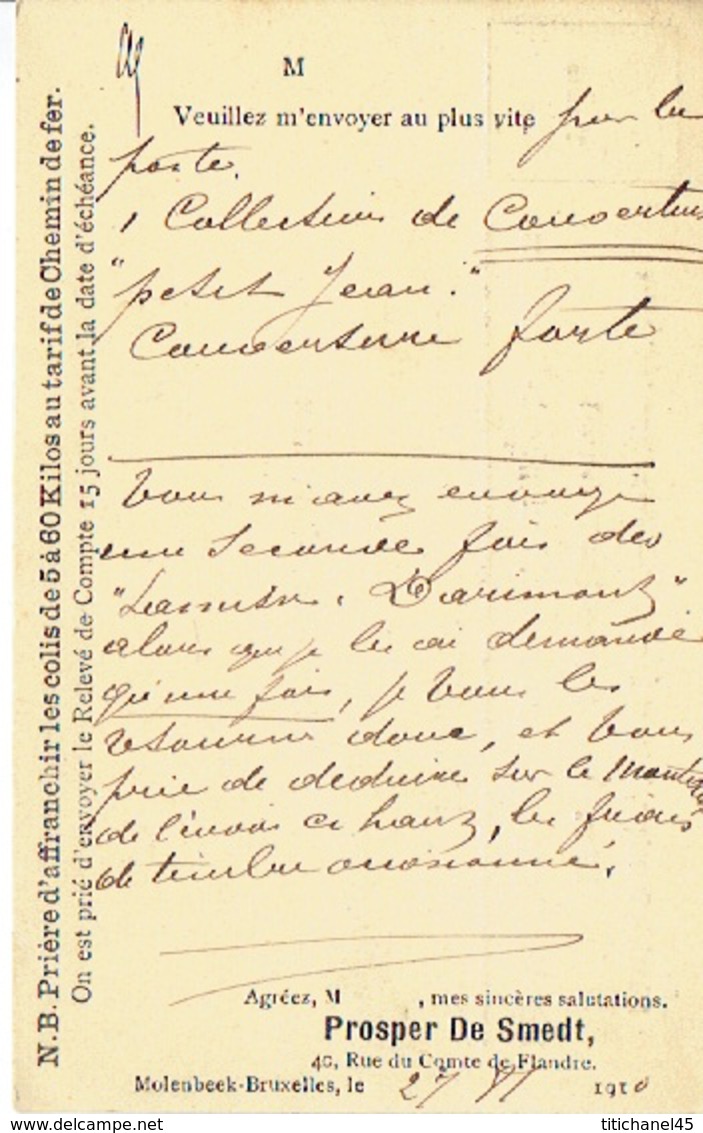 N.B. Prière d'affranchir les colis de 5 à 60 Kilos au tarif de Chemin de fer.
On est prié d'envoyer le Relevé de Compte 15 jours avant la date d'échéance.
M
Veuillez m'envoyer au plus vite par la
poste.
1 Collection de Couvertures
"petit Jean."
Couverture forte
Vous m'avez envoyé
une seconde fois des
Darimont"
alors que je les ai demandé
qu'une fois, je vous les
retourne donc, et vous
prie de déduire sur le montant
de l'envoi ci haut, les frais
de timbre occasionné.
Agréez, M , mes sincères salutations.
Prosper De Smedt,
40, Rue du Comte de Flandre.
Molenbeek-Bruxelles, le 27 VI 1910
titichanel45